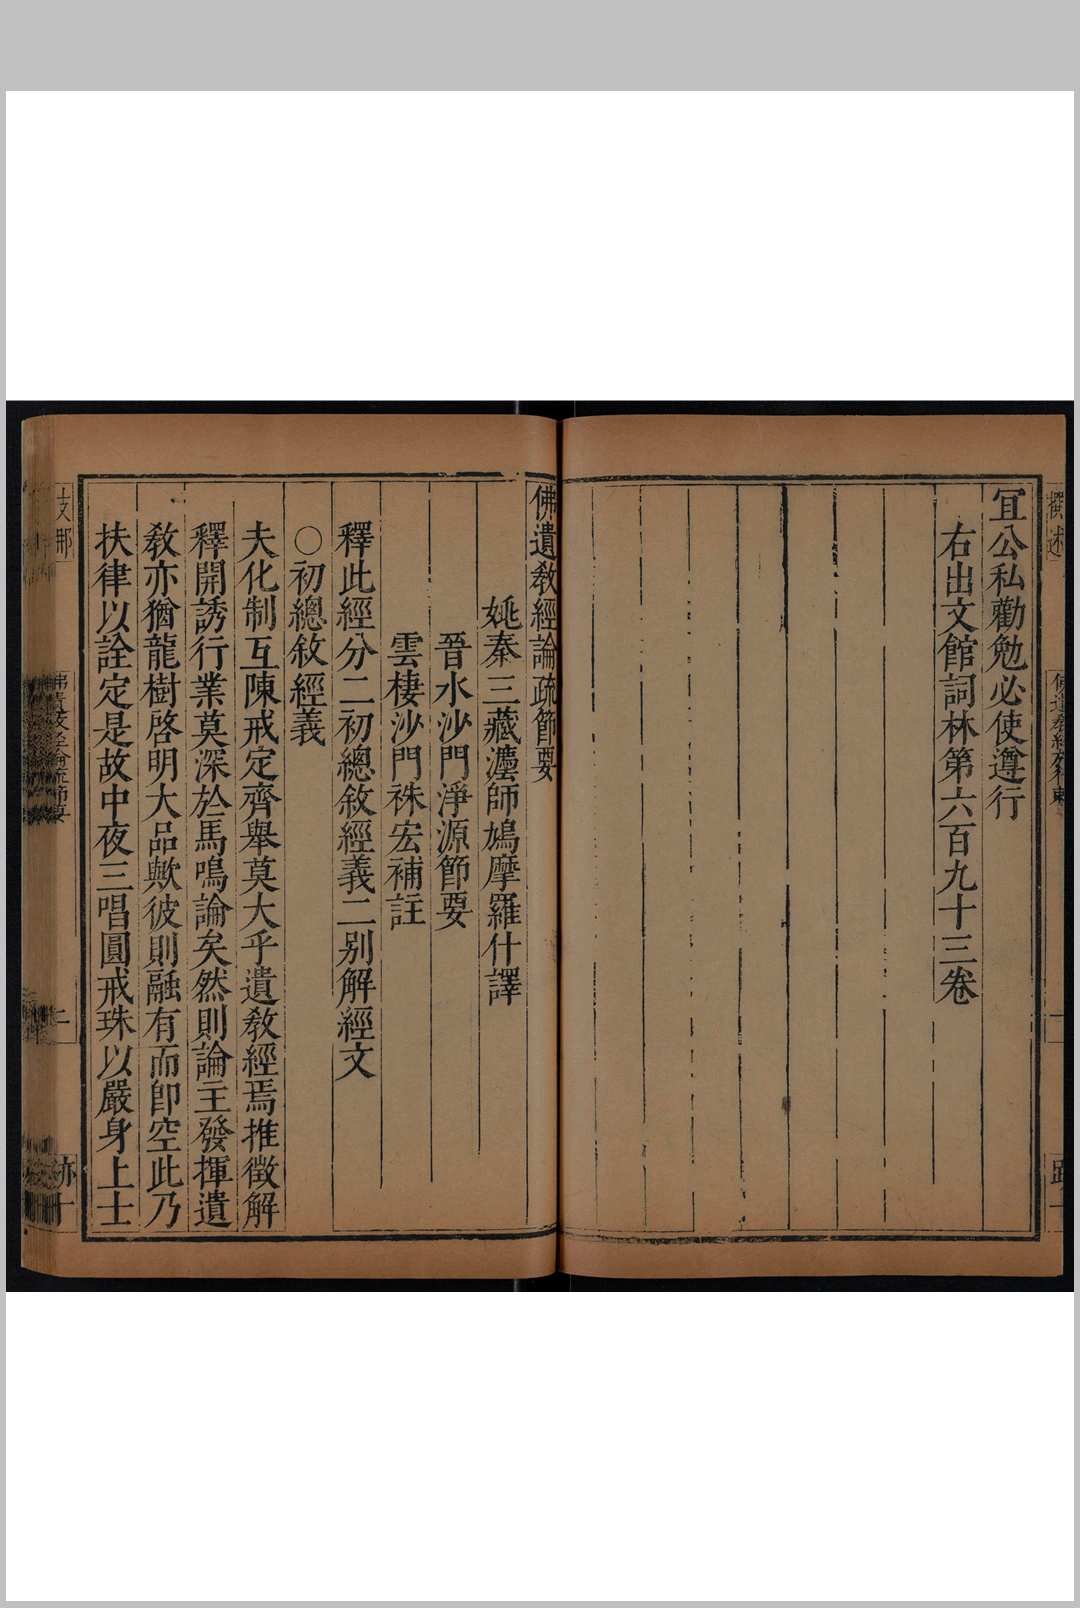 宜公私勸勉必使遵行
右出文館詞林第六百九十三卷
佛遺教經論疏節要
姚秦三藏灋師鳩摩羅什譯
晉水沙門淨源節要
雲棲沙門袾宏補註
釋此經分二初總敘經義二别解經文
○初總敘經義
夫化制互陳戒定齊舉莫大乎遺教經焉推徵解
釋開誘行業莫深於馬鳴論矣然則論主發揮遺
教亦猶龍樹啓明大品歟彼則融有而卽空此乃
扶律以詮定是故中夜三唱圓戒珠以嚴身上士
支那
佛遺教經論疏節要
二
跡十